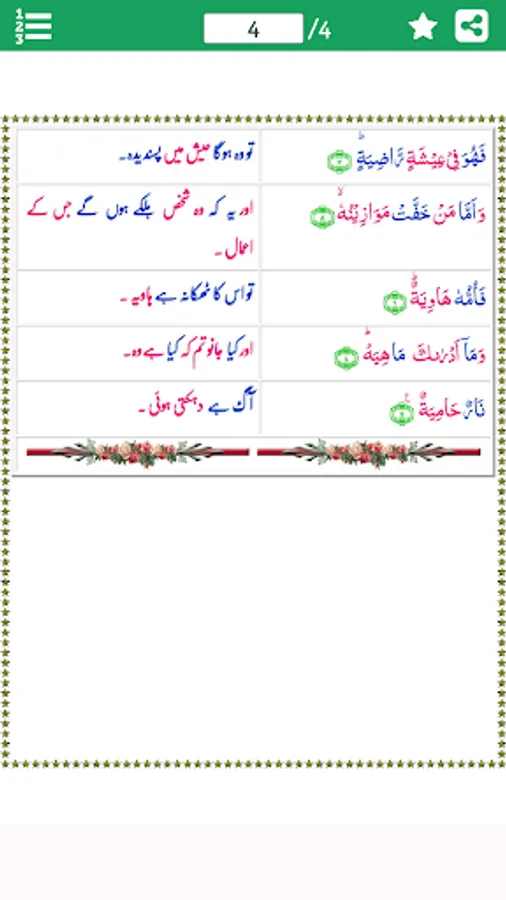 1
2
3
4 /4
فَهُوَ فِیْ عِیْشَةٍ رَّاضِیَةٍ ؕ ۷
تو وہ ہوگا عیش میں پسندیدہ۔
وَ اَمَّا مَنْ خَفَّتْ مَوَازِیْنُهٗ ۙ ۸
اور یہ کہ وہ شخص ہلکے ہوں گے جس کے
اعمال۔
فَاُمُّهٗ هَاوِیَةٌ ؕ ۹
تو اس کا ٹھکانہ ہے ہاویہ۔
وَ مَاۤ اَدْرٰىكَ مَا هِیَهْ ؕ ۱۰
اور کیا جانو تم کہ کیا ہے وہ۔
نَارٌ حَامِیَةٌ
آگ ہے دہکتی ہوئی۔